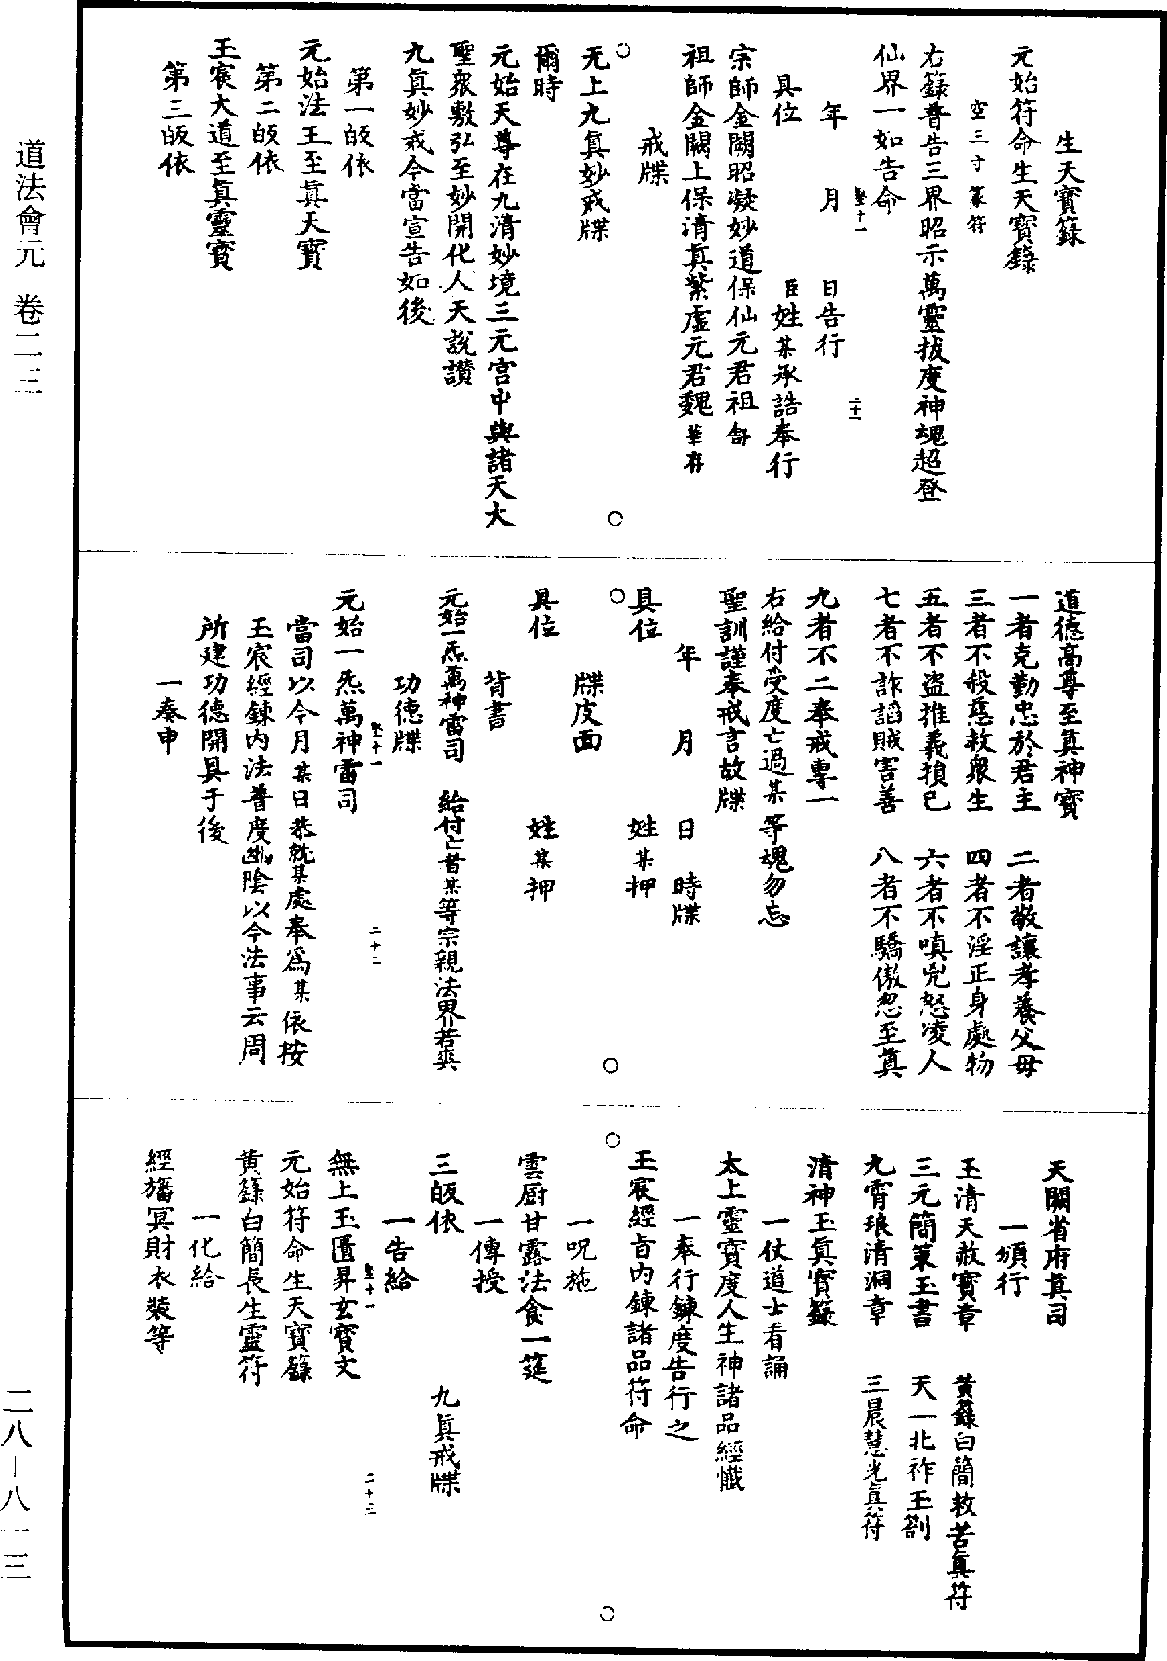 道法會元　卷二三
二八—八一三
生天寶籙
元始符命生天寶籙
空三寸篆符
右籙普告三界昭示萬靈拔度神魂超登
仙界一如告命
堅十一　二十一
年　月　日告行
具位　臣姓某承誥奉行
宗師金闕昭凝妙道保仙元君祖舒
祖師金闕上保清真紫虛元君魏華存
戒牒
无上九真妙戒牒
爾時
元始天尊在九清妙境三元宫中與諸天大
聖衆敷弘至妙開化人天說讚
九真妙戒今當宣告如後
第一皈依
元始法王至真天寶
第二皈依
玉宸大道至真靈寶
第三皈依
道德高尊至真神寶
一者克勤忠於君主　二者敬讓孝養父母
三者不殺慈救衆生　四者不淫正身處物
五者不盜推義損己　六者不嗔兇怒凌人
七者不詐諂賊害善　八者不驕傲忽至真
九者不二奉戒專一
右給付受度亡過某等魂勿忘
聖訓謹奉戒言故牒
年　月　日　時牒
具位　姓某押
牒皮面
具位　姓某押
背書
元始一炁萬神雷司　給付亡者某等宗親法界若爽
功德牒
堅十一　二十二
元始一炁萬神雷司
當司以今月某日恭就某處奉爲某依按
玉宸經鍊内法普度幽陰以今法事云周
所建功德開具于後
一奏申
天闕省府真司
一頒行
玉清天赦寶章　黄籙白簡救苦真符
三元簡篆玉書　天一北祚玉劄
九霄琅清洞章　三晨慧光真符
清神玉真寶籙
一仗道士看誦
太上靈寶度人生神諸品經懺
一奉行鍊度告行之
玉宸經旨内鍊諸品符命
一呪施
雲厨甘露法食一筵
一傳授
三皈依　九真戒牒
一告給
堅十一　二十三
無上玉匱昇玄寶文
元始符命生天寶籙
黄籙白簡長生靈符
一化給
經旛冥財衣裝等